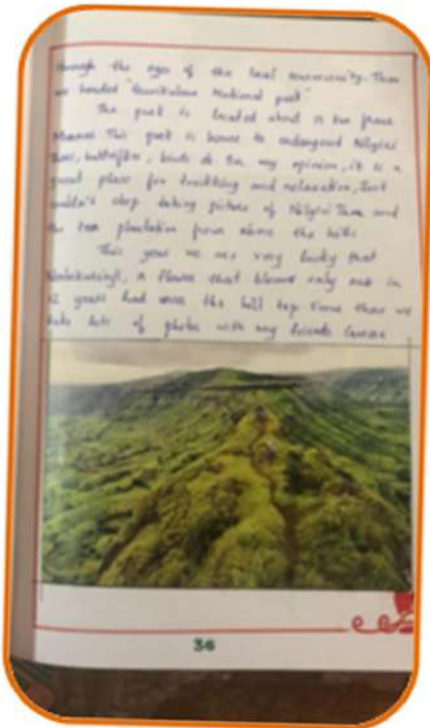 through the eyes of the local community. Then
we headed "Eravikulam National park"
The park is located about 15 km from
Munnar. This park is home to endangered Nilgiri
Thar, butterflies, birds etc. In my opinion, it is a
great place for trekking and relaxation, Just
couldn't stop taking picture of Nilgiri Thar and
the tea plantation from above the hills
This year we are very lucky that
a flower that blooms only once in
12 years had over the hill top. Since then we
take lots of photos with my friends
36